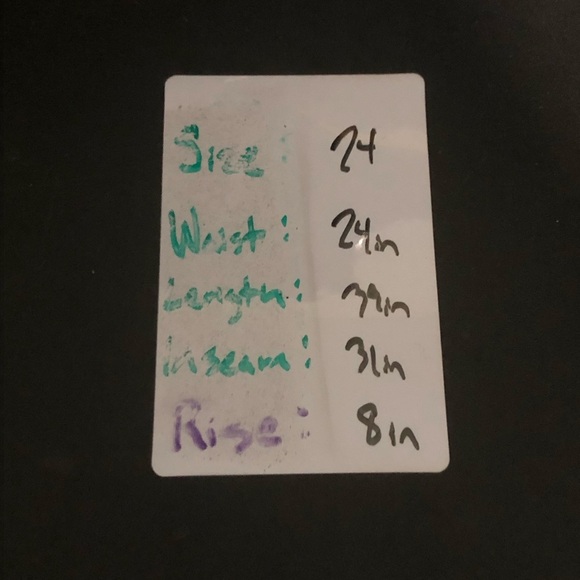 Size: 24
Waist: 24in
Length: 39in
Inseam: 31in
Rise: 8in